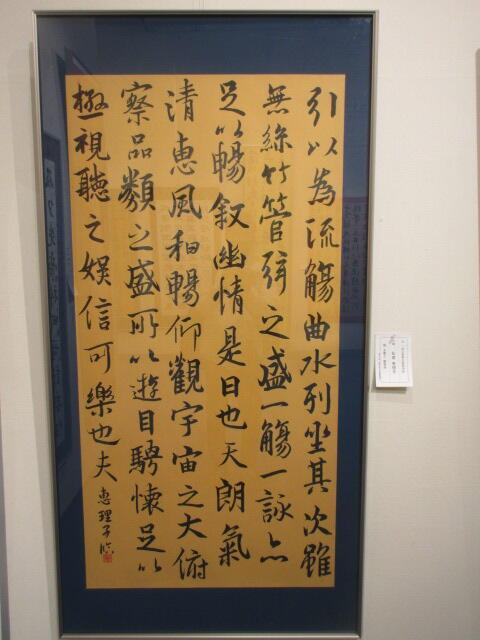 引以為流觴曲水列坐其次雖
無絲竹管弦之盛一觴一詠亦
足以暢叙幽情是日也天朗氣
清恵風和暢仰觀宇宙之大俯
察品類之盛所以遊目騁懷足以
極視聽之娯信可樂也夫
恵理子臨